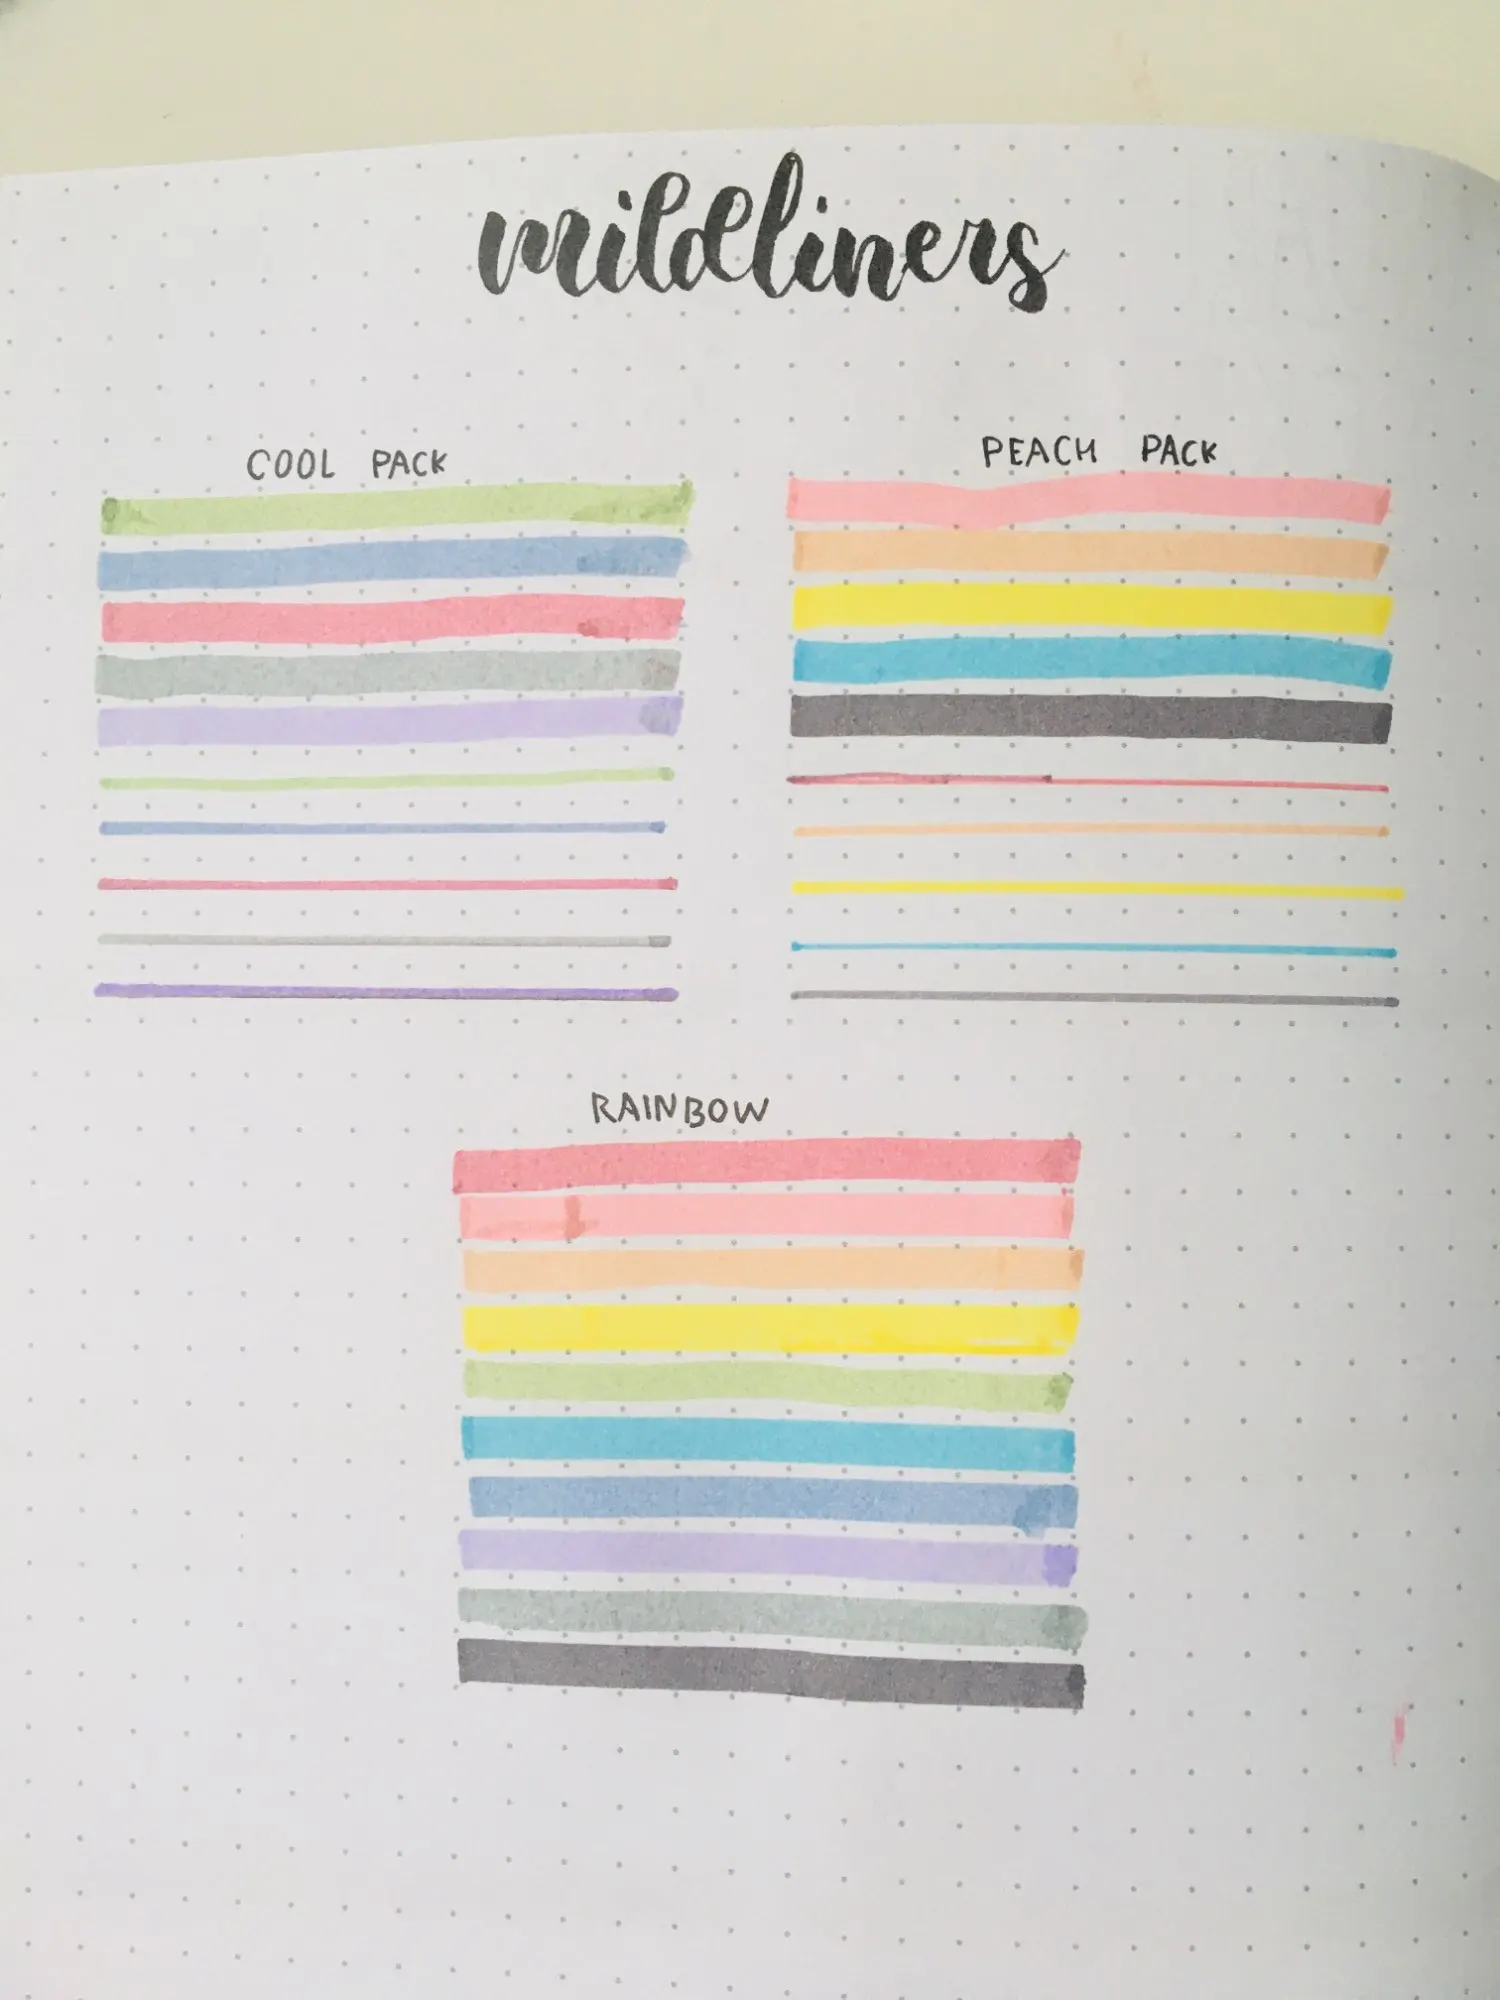 mildliners
COOL PACK
PEACH PACK
RAINBOW